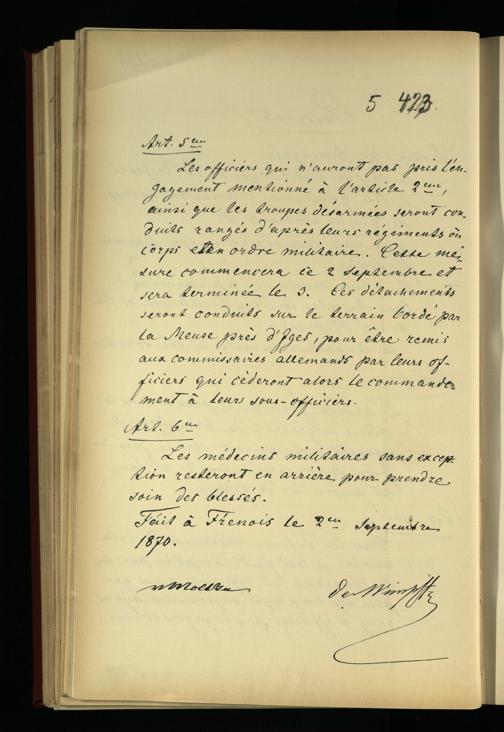 5 423.
Art. 5em
Les officiers qui n'auront pas pris l'en-
gagement mentionné à l'article 2em,
ainsi que les troupes désarmées seront con-
duits rangés d'après leurs régiments ou
corps et en ordre militaire. Cette me-
sure commencera le 2 septembre et
sera terminée le 3. Ces détachements
seront conduits sur le terrain bordé par
la Meuse près d'Iges, pour être remis
aux commissaires allemands par leurs of-
ficiers qui céderont alors le commande-
ment à leurs sous-officiers.
Art. 6em
Les médecins militaires sans excep-
tion resteront en arrière pour prendre
soin des blessés.
Fait à Frenois le 2em Septembre
1870.
v Moltke de Wimpffen